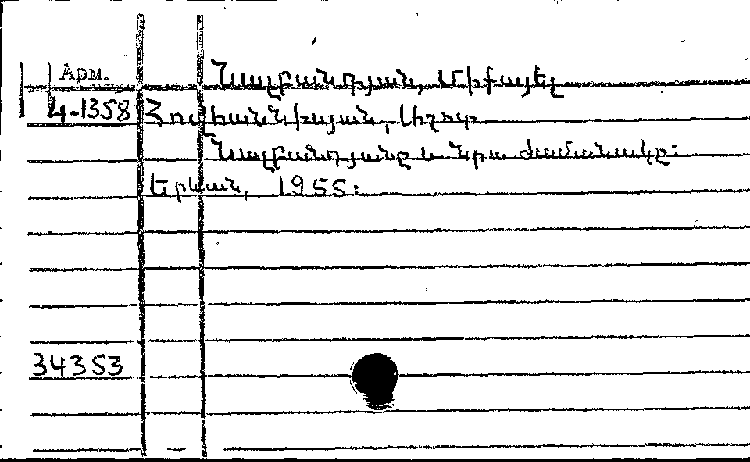 Арм. Նալբանդյան, Միքայել
4-1358 Հովհաննիսյան,
Նալբանդյանը և նրա ժամանակը:
Երևան, 1955:
34353